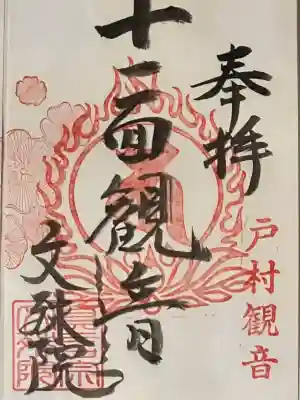 奉拝
戸村観音
十一面観音
文殊院